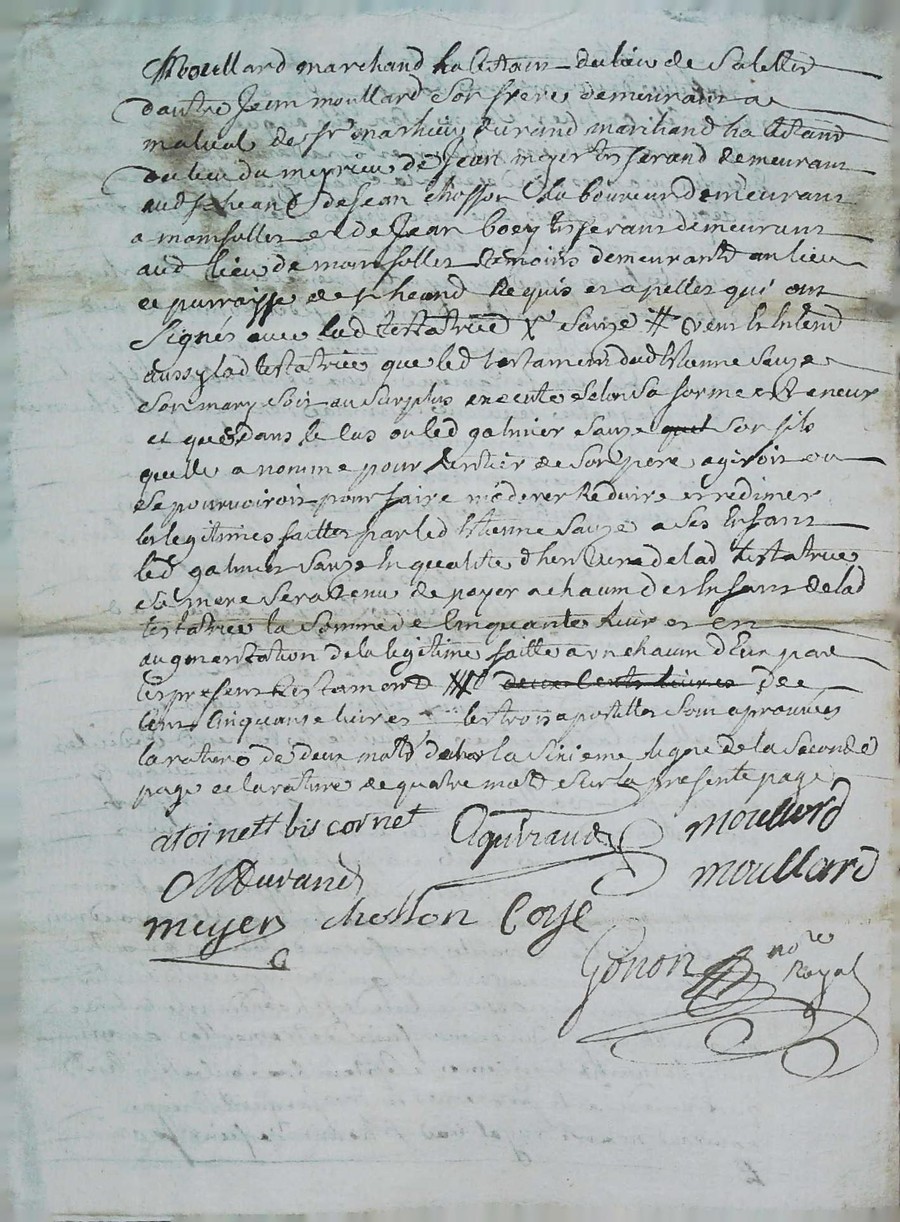 Moullard marchand habitant du lieu de Salettes
dautre Jean moullard son frere demeurant a
malval de sr mathieu durand marchand habitant
du lieu du meyrieu de Jean meyer tisserand demeurant
aud st heand de Jean chosson laboureur demeurant
a monsollet et de Jean boey tisserant demeurant
aud lieu de monsollet temoins demeurants au lieu
et parroisse de st heand Requis et apelles qui ont
signes avec lad testatrice X sauze # veut et entend
aussy lad testatrice que led testament dud Etienne sauze
son mary soit au surplus execute selon sa forme et teneur
et que dans le cas ou led galmier sauze quil son fils
quelle a nomme pour heritier de son pere agiroit ou
se pourvoiroit pour faire moderer Reduire et redimer
les legitimes faittes par led Etienne sauze a ses enfans
led galmier sauze en qualite dheritier de lad testatrice
sa mere sera tenu de payer a chacun des enfans de lad
testatrice la somme de cinquante livres et en
augmentation de la legitime faitte a un chacun deux par
le present testament de
cent cinquante livres les trois apostilles sont aprouvees
la rature de deux mots dans la sixieme ligne de la seconde
page et la rature de quatre mots sur la presente page
atoinett biscornet Aguiraud moullard
MDurand moullard
meyer chosson Boye
Gonon nore
Royal